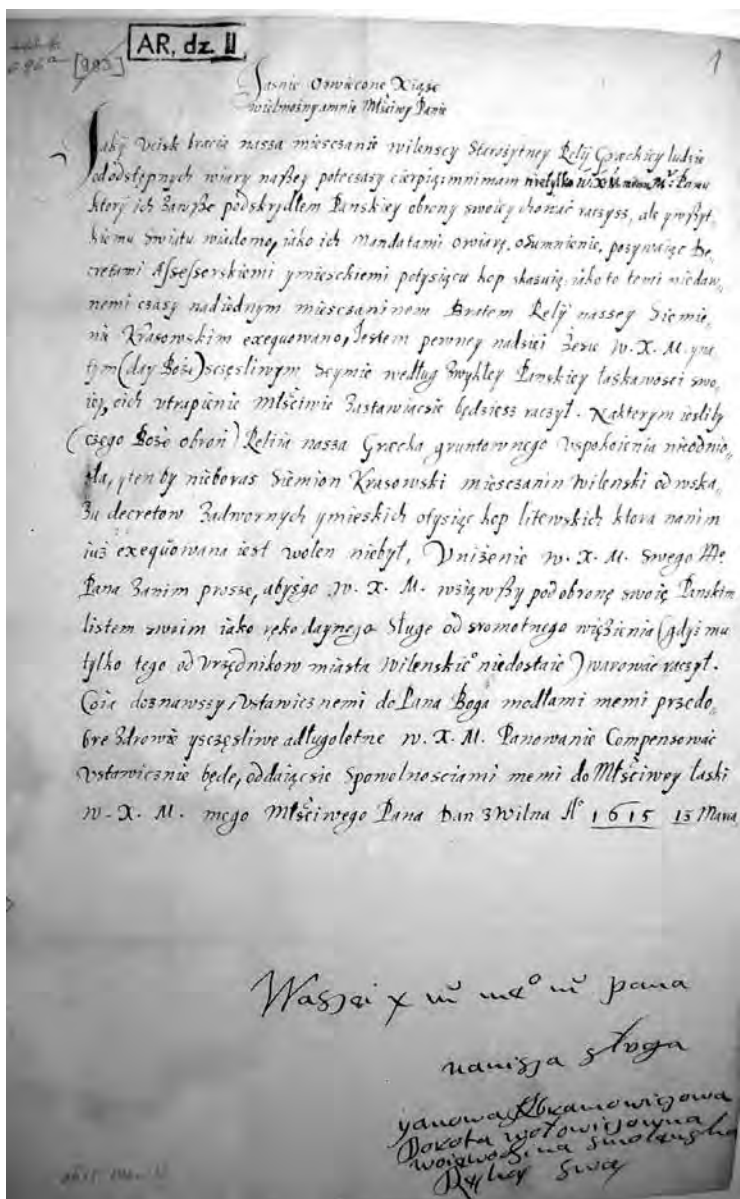 [993]
AR, dz II
1
Jasnie Oswiecone Xiąże
wielmożny a mnie Mściwy Panie
Jaky Vcisk bracia nasza miesczanie wilenscy Starożytney Relij Græckiey ludzie
ododstępnych wiary naszey poteczasy cierpią: mnimam nietylko W. X. M. memu Mº: Panu
ktory ich zawsze podskrydłem Panskiey obrony swoiey chonać raczysz, ale ywszyt,
kiemu Swiatu wiadomo, iako ich Mandatami owiarę, osumnienie, pozywaiąc De,
cretami Assessorskiemi ymiesckiemi potysiącu kop skazuią, iako to temi niedaw,
nemi czasy nadiednym miesczaninem Bratem Relij nassey Siemie,
nū Krasowskim exequowano, Jestem pewney nadziei żesie W. X. M. yna
tym (day Boże) sczęsliwym Seymie według zwykłey Panskiey łaskawosci swo,
iey, oich vtrapienie Mściwie Zastawiacsie będziesz raczył. Nakterym iesliby
(czego Boże obroń) Reliia nasza Græcka gruntownego vspokoienia nieodnio,
sła, yten by nieboras Siemion Krasowski miesczanin Wilenski odwska,
zu decretow Zadwornych ymieskich otysiąc kop litewskich ktora nanim
iuż exequowana iest wolen niebył, Vniżenie W. X. M. swego Mº
Pana Zanim prosze, abyśgo W. X. M. wziąwszy podobronę swoię Panskim
listem swoim iako rękodaynego Sługę od sromotnego więżienia (gdyż mu
tylko tego od Vrzędnikow miasta Wilenskiº niedostaie) warować raczył.
Coia doznawszy, Vstawicznemi do Pana Boga modłami memi przedo,
bre Zdrowie ysczęsliwe adługoletne W. X. M. Panowanie Compensować
Vstawicznie będe, oddaiącsie Spowolnościami memi do Mściwey łaski
W. X. M. mego Mściwego Pana Dan z Wilna Aº 1615 13 Marca
Waszei x m meº m pana
nanisza sługa
yanowa Abramowiczowa
Dorota wołowiczowna
woiewodzina smolenska
Ręką swą